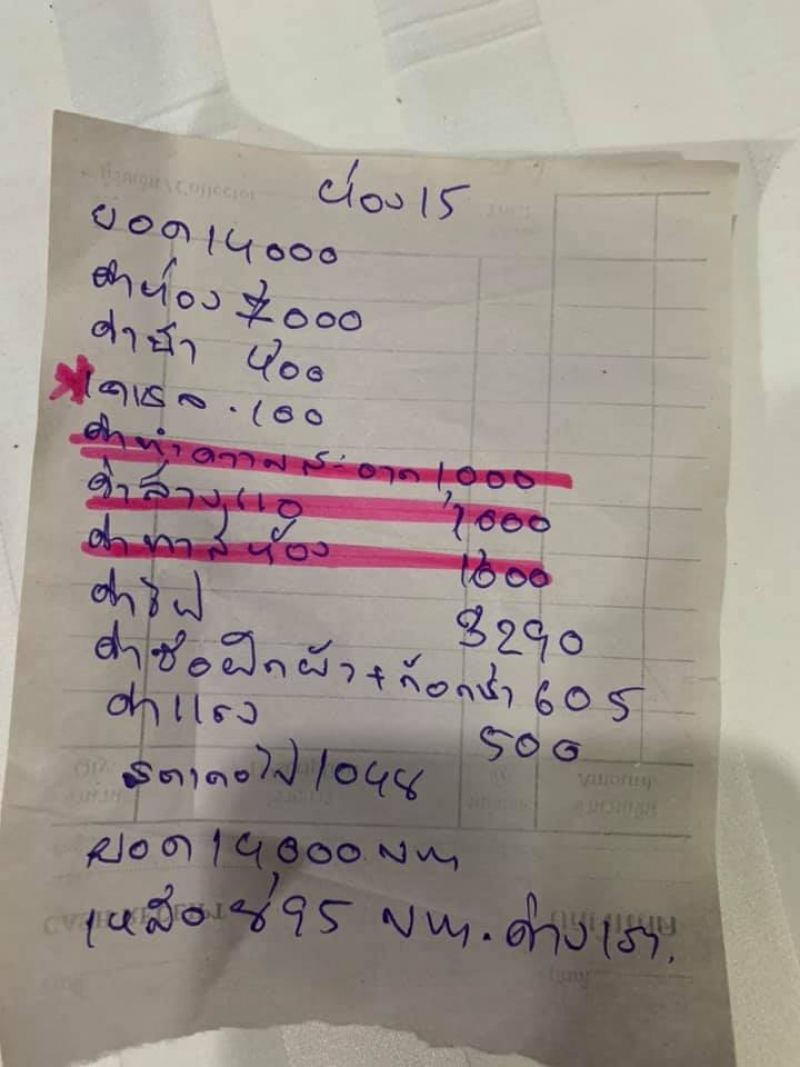 ห้อง 15
ยอด 14000
ค่าห้อง 7000
ค่าน้ำ 400
100
ค่าทำความสะอาด 1000
ค่าล้างแอ 1000
ค่าทาสีห้อง 1000
ค่าไฟ 3290
ค่าซื้อฝักบัว + ก๊อกน้ำ 605
ค่าแรง 500
1048
ยอด 14,000 บาท
เหลือ 895 บาท. ค้างเรา.
CASH